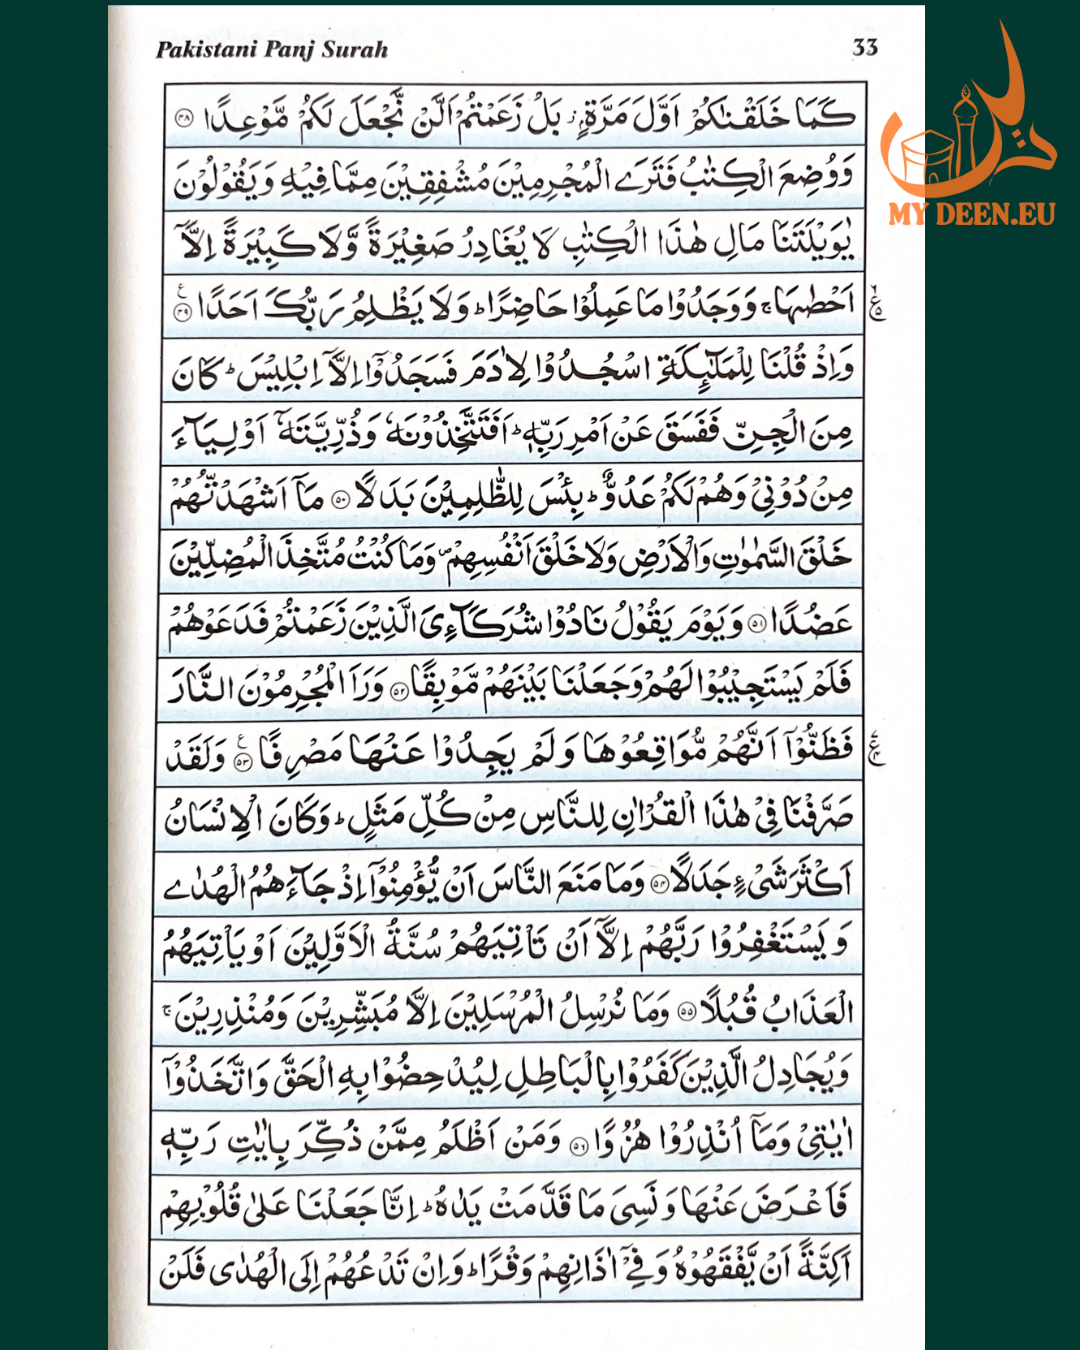 Pakistani Panj Surah 33
كَمَا خَلَقْنٰكُمْ اَوَّلَ مَرَّةٍۭ ز بَلْ زَعَمْتُمْ اَلَّنْ نَّجْعَلَ لَكُمْ مَّوْعِدًا ﴿۴۸﴾
MY DEEN.EU
وَوُضِعَ الْكِتٰبُ فَتَرَى الْمُجْرِمِيْنَ مُشْفِقِيْنَ مِمَّا فِيْهِ وَيَقُوْلُوْنَ
يٰوَيْلَتَنَا مَالِ هٰذَا الْكِتٰبِ لَا يُغَادِرُ صَغِيْرَةً وَّلَا كَبِيْرَةً اِلَّاۤ
اَحْصٰىهَا ۚ وَوَجَدُوْا مَا عَمِلُوْا حَاضِرًا ؕ وَلَا يَظْلِمُ رَبُّكَ اَحَدًا ﴿۴۹﴾ ع
وَاِذْ قُلْنَا لِلْمَلٰٓئِكَةِ اسْجُدُوْا لِاٰدَمَ فَسَجَدُوْۤا اِلَّاۤ اِبْلِيْسَ ؕ كَانَ
مِنَ الْجِنِّ فَفَسَقَ عَنْ اَمْرِ رَبِّهٖ ؕ اَفَتَتَّخِذُوْنَهٗ وَذُرِّيَّتَهٗۤ اَوْلِيَآءَ
مِنْ دُوْنِيْ وَهُمْ لَكُمْ عَدُوٌّ ؕ بِئْسَ لِلظّٰلِمِيْنَ بَدَلًا ﴿۵۰﴾ مَاۤ اَشْهَدْتُّهُمْ
خَلْقَ السَّمٰوٰتِ وَالْاَرْضِ وَلَا خَلْقَ اَنْفُسِهِمْ ۪ وَمَا كُنْتُ مُتَّخِذَ الْمُضِلِّيْنَ
عَضُدًا ﴿۵۱﴾ وَيَوْمَ يَقُوْلُ نَادُوْا شُرَكَآءِيَ الَّذِيْنَ زَعَمْتُمْ فَدَعَوْهُمْ
فَلَمْ يَسْتَجِيْبُوْا لَهُمْ وَجَعَلْنَا بَيْنَهُمْ مَّوْبِقًا ﴿۵۲﴾ وَرَاَ الْمُجْرِمُوْنَ النَّارَ
فَظَنُّوْۤا اَنَّهُمْ مُّوَاقِعُوْهَا وَلَمْ يَجِدُوْا عَنْهَا مَصْرِفًا ﴿۵۳﴾ وَلَقَدْ ع
صَرَّفْنَا فِيْ هٰذَا الْقُرْاٰنِ لِلنَّاسِ مِنْ كُلِّ مَثَلٍ ؕ وَكَانَ الْاِنْسَانُ
اَكْثَرَ شَيْءٍ جَدَلًا ﴿۵۴﴾ وَمَا مَنَعَ النَّاسَ اَنْ يُّؤْمِنُوْۤا اِذْ جَآءَهُمُ الْهُدٰى
وَيَسْتَغْفِرُوْا رَبَّهُمْ اِلَّاۤ اَنْ تَاْتِيَهُمْ سُنَّةُ الْاَوَّلِيْنَ اَوْ يَاْتِيَهُمُ
الْعَذَابُ قُبُلًا ﴿۵۵﴾ وَمَا نُرْسِلُ الْمُرْسَلِيْنَ اِلَّا مُبَشِّرِيْنَ وَمُنْذِرِيْنَ ۚ
وَيُجَادِلُ الَّذِيْنَ كَفَرُوْا بِالْبَاطِلِ لِيُدْحِضُوْا بِهِ الْحَقَّ وَاتَّخَذُوْۤا
اٰيٰتِيْ وَمَاۤ اُنْذِرُوْا هُزُوًا ﴿۵۶﴾ وَمَنْ اَظْلَمُ مِمَّنْ ذُكِّرَ بِاٰيٰتِ رَبِّهٖ
فَاَعْرَضَ عَنْهَا وَنَسِيَ مَا قَدَّمَتْ يَدٰهُ ؕ اِنَّا جَعَلْنَا عَلٰى قُلُوْبِهِمْ
اَكِنَّةً اَنْ يَّفْقَهُوْهُ وَفِيْۤ اٰذَانِهِمْ وَقْرًا ؕ وَاِنْ تَدْعُهُمْ اِلَى الْهُدٰى فَلَنْ